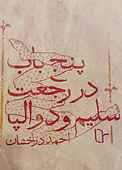 پنج باب
در رجعت
سلیم و دوالپا
احمد درخشان